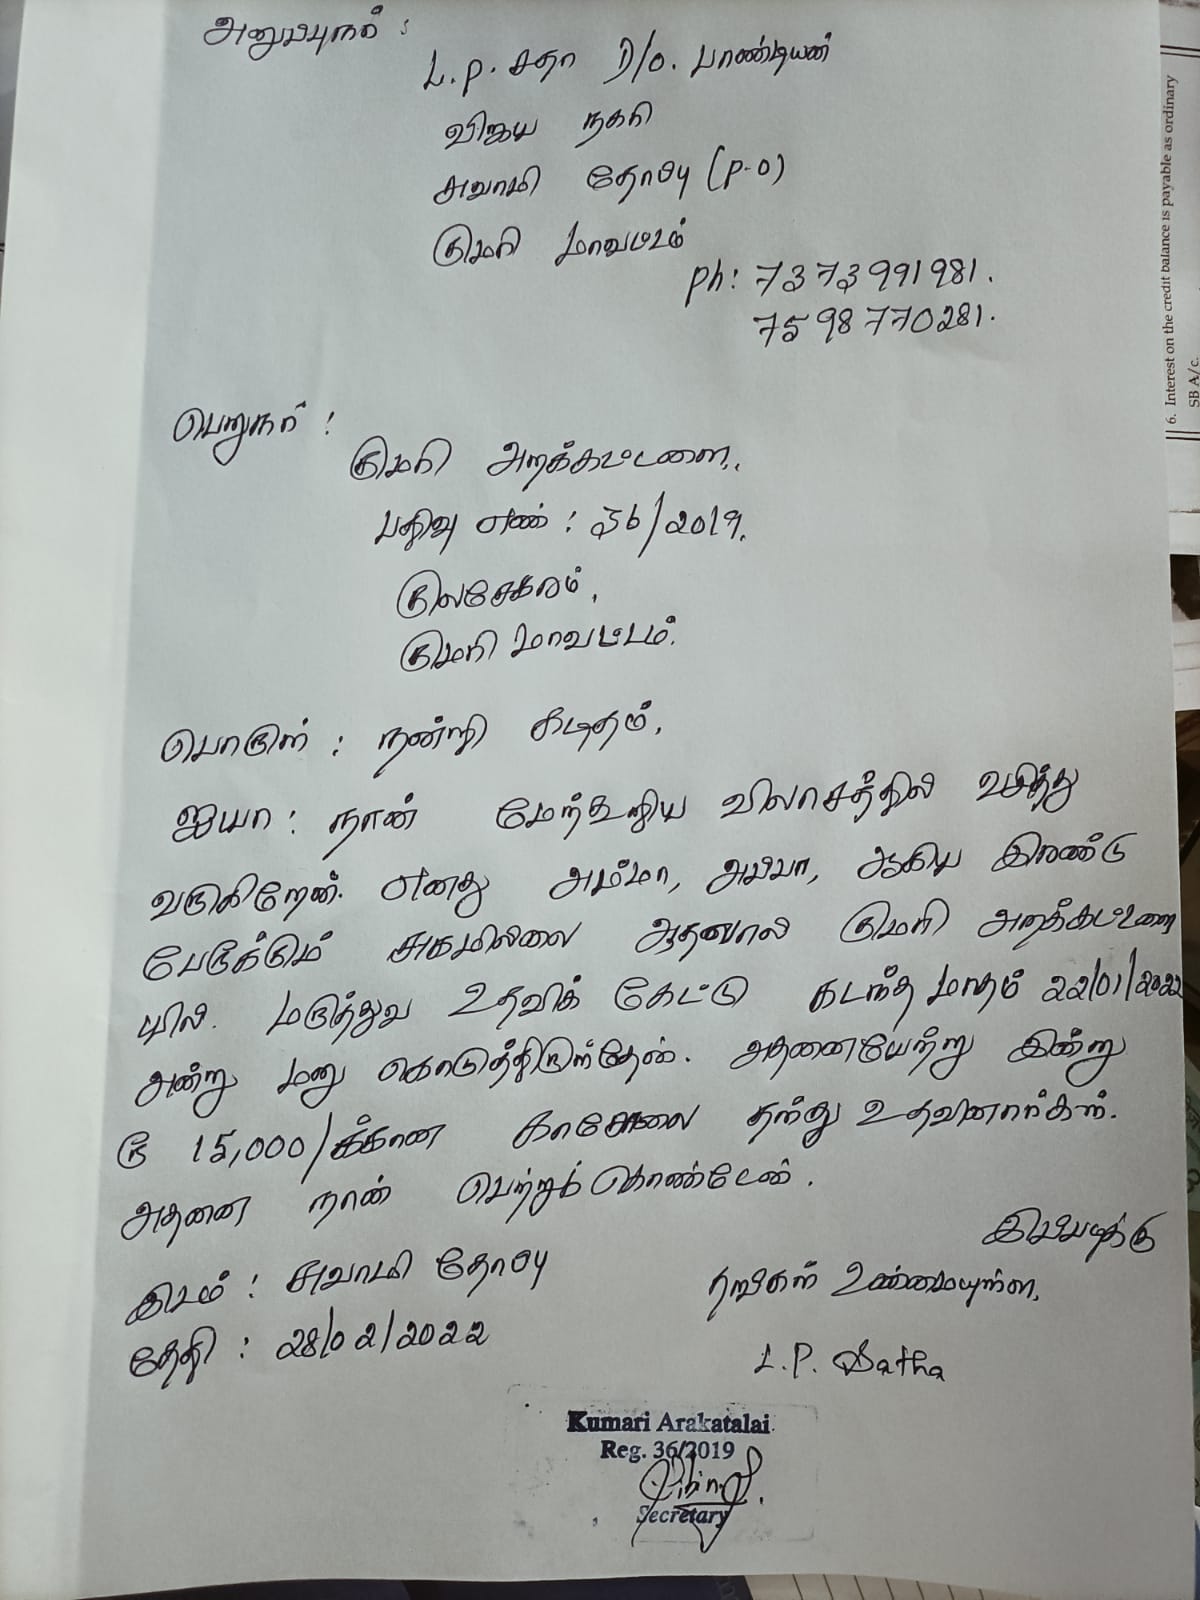 அனுப்புநர் :
L.P. சதா D/o. பாண்டியன்
விஜய நகரி
சுவாமி தோப்பு (P.O)
குமரி மாவட்டம்
Ph: 7373991981.
7598770281.
பெறுநர் :
குமரி அறக்கட்டளை,
பதிவு எண் : 36/2019.
குலசேகரம்,
குமரி மாவட்டம்.
பொருள் : நன்றி கடிதம்.
ஐயா : நான் மேற்கூறிய விலாசத்தில் வசித்து
வருகிறேன். எனது அம்மா, அப்பா, ஆகிய இரண்டு
பேருக்கும் சுகமில்லை ஆதலால் குமரி அறக்கட்டளை
யில். மருத்துவ உதவிக் கேட்டு கடந்த மாதம் 22/01/2022
அன்று மனு கொடுத்திருந்தேன். அதனையேற்று இன்று
ரூ 15,000/க்கான காசோலை தந்து உதவினார்கள்.
அதனை நான் பெற்றுக்கொண்டேன்.
இப்படிக்கு
இடம் : சுவாமி தோப்பு
தங்கள் உண்மையுள்ள,
தேதி : 28/02/2022
L.P. Satha
Kumari Arakatalai
Reg. 36/2019
Secretary
6. Interest on the credit balance is payable as ordinary
SB A/c.